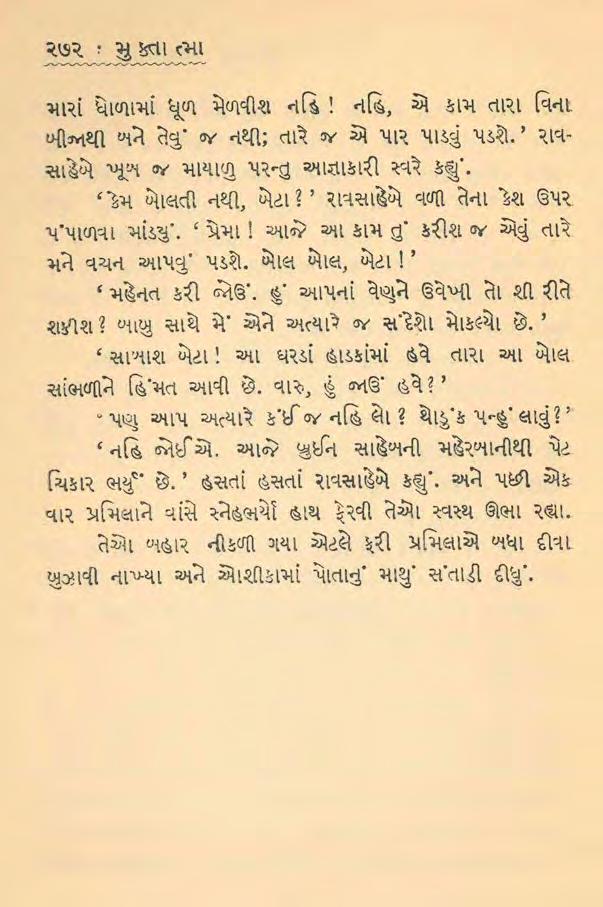 ૨૭૨ : મુક્તાત્મા
મારાં ધોળામાં ધૂળ મેળવીશ નહિ ! નહિ, એ કામ તારા વિના
બીજાથી બને તેવું જ નથી; તારે જ એ પાર પાડવું પડશે.’ રાવ-
સાહેબે ખૂબ જ માયાળુ પરન્તુ આજ્ઞાકારી સ્વરે કહ્યું.
‘કેમ બોલતી નથી, બેટા ? ’ રાવસાહેબે વળી તેના કેશ ઉપર
પંપાળવા માંડયું. ‘ પ્રેમા ! આજે આ કામ તું કરીશ જ એવું તારે
મને વચન આપવું પડશે. બોલ બોલ, બેટા ! ’
‘ મહેનત કરી જોઉં. હું આપનાં વેણુને ઉવેખી તો શી રીતે
શકીશ ? બાબુ સાથે મેં એને અત્યારે જ સંદેશો મોકલ્યો છે. ’
‘ સાબાશ બેટા ! આ ઘરડાં હાડકાંમાં હવે તારા આ બોલ
સાંભળીને હિંમત આવી છે. વારુ, હું જાઉં હવે ? ’
‘ પણ આપ અત્યારે કંઈ જ નહિ લો ? થોડુંક પન્હું લાવું ? ’
‘ નહિ જોઈએ. આજે બ્રુઈન સાહેબની મહેરબાનીથી પેટ
ચિકાર ભર્યું છે. ’ હસતાં હસતાં રાવસાહેબે કહ્યું. અને પછી એક
વાર પ્રમિલાને વાંસે સ્નેહભર્યો હાથ ફેરવી તેઓ સ્વસ્થ ઊભા રહ્યા.
તેઓ બહાર નીકળી ગયા એટલે ફરી પ્રમિલાએ બધા દીવા
બુઝાવી નાખ્યા અને ઓશીકામાં પોતાનું માથું સંતાડી દીધું.